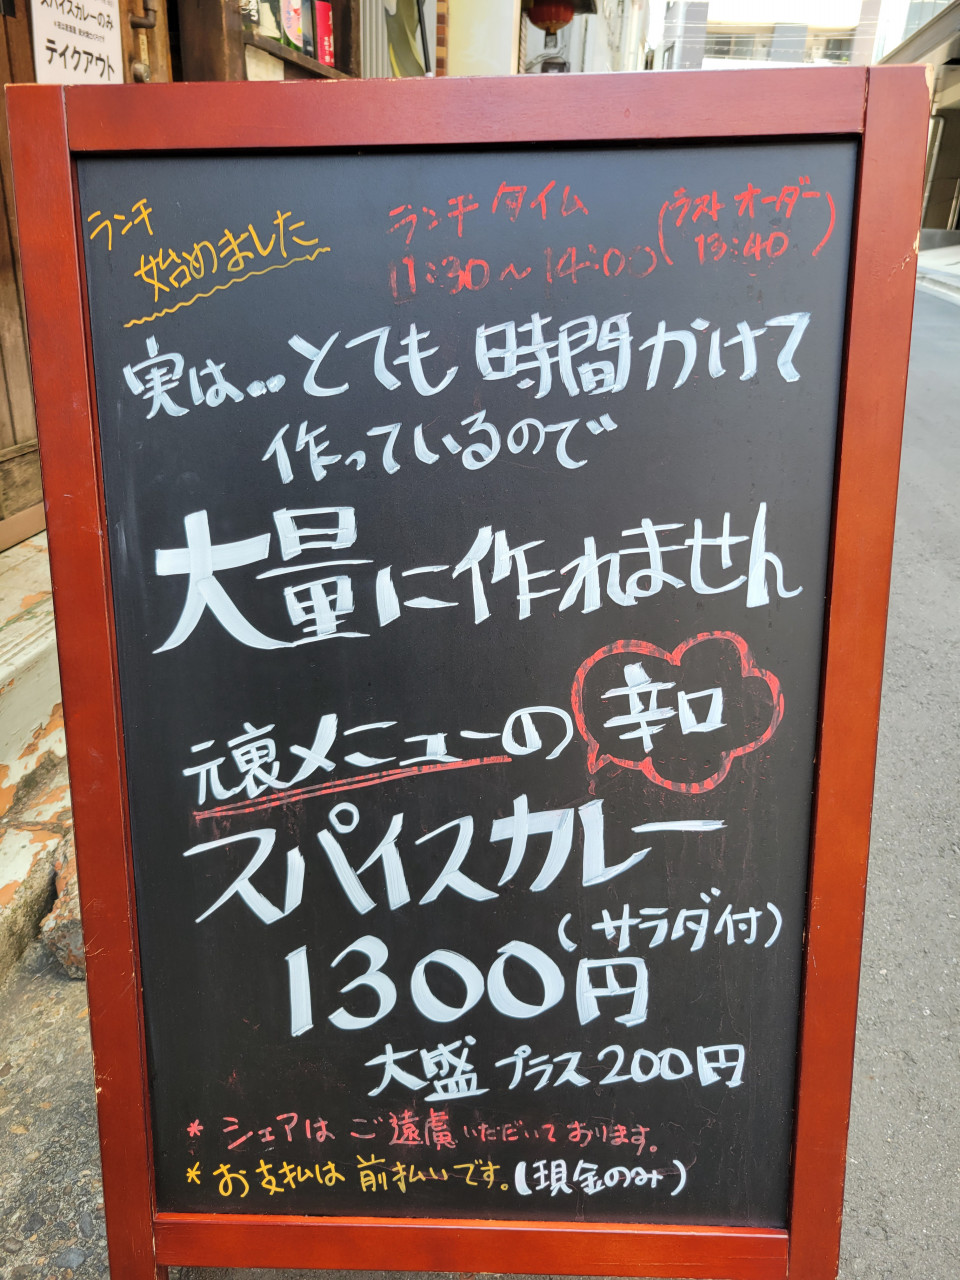 スパイスカレーのみ
テイクアウト
ランチ
始めました
ランチ タイム
11:30～14:00
(ラスト オーダー
13:40)
実は…とても 時間かけて
作っているので
大量に作れません
元裏メニューの 辛口
スパイスカレー
(サラダ付)
1300円
大盛 プラス200円
* シェアは ご遠慮いただいております。
* お支払は 前払いです。(現金のみ)